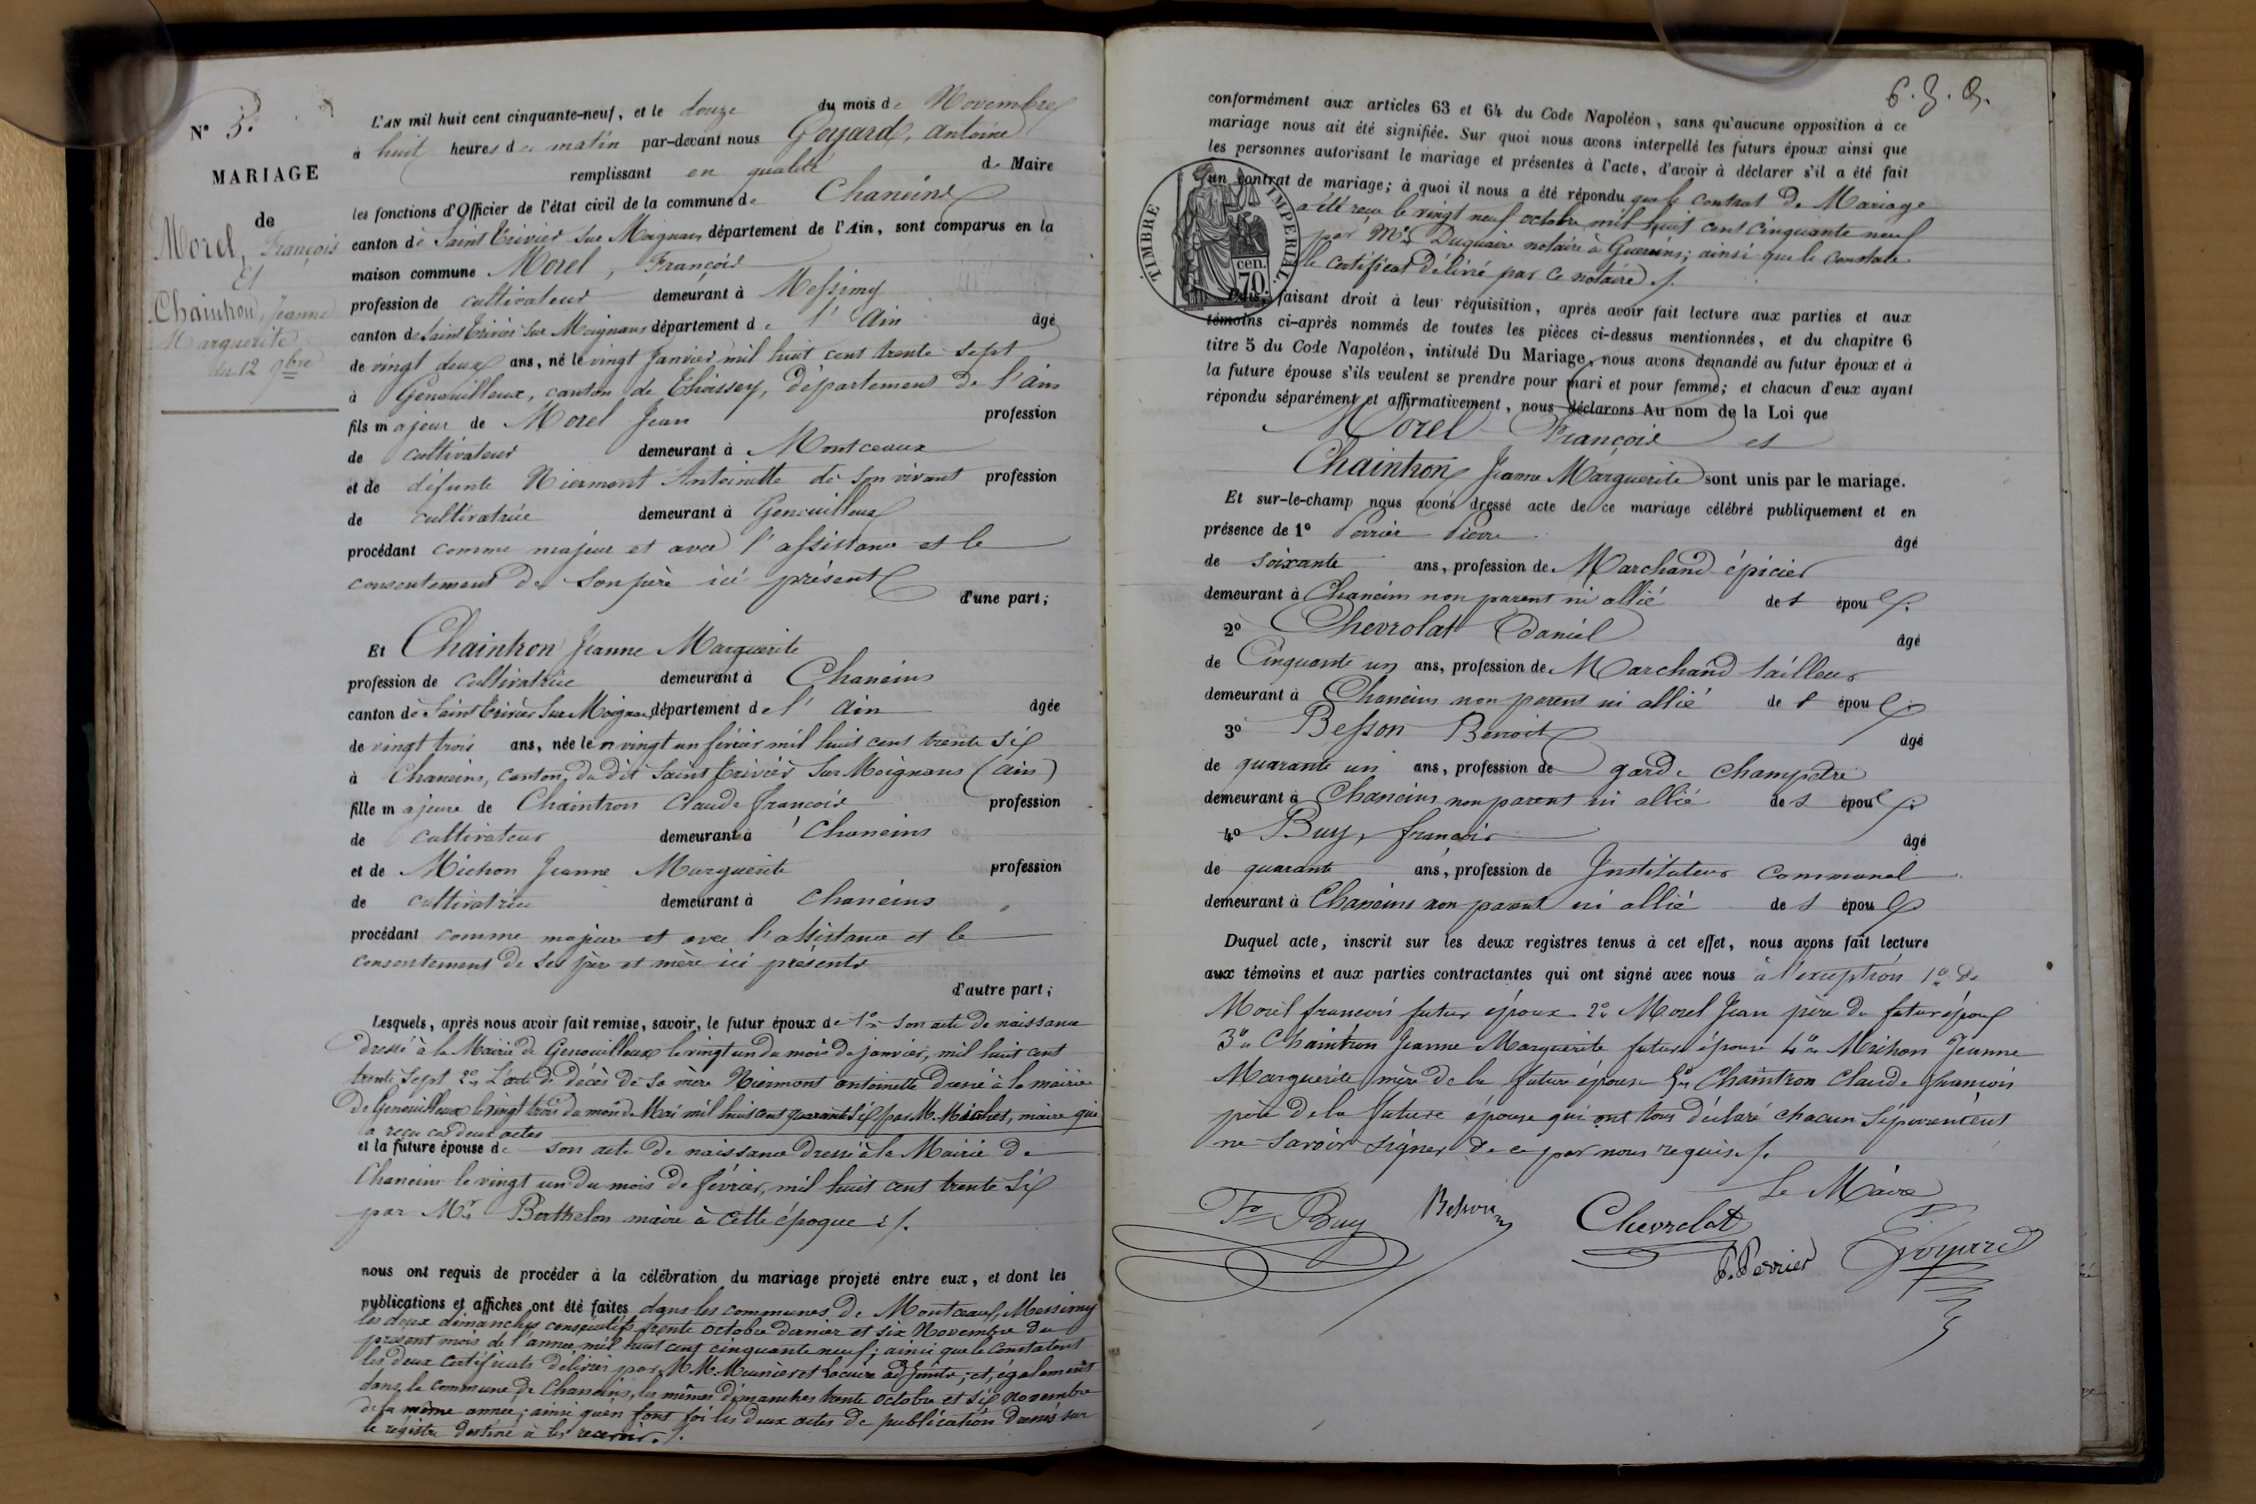 N° 5.
MARIAGE
de
Morel, François
Et
Chaintron, Jeanne
Marguerite
du 12 9bre
L'AN mil huit cent cinquante-neuf, et le douze du mois de Novembre
à huit heures de matin par-devant nous Goyard, Antoine
remplissant en qualité de Maire
les fonctions d'Officier de l'état civil de la commune de Chaneins
canton de Saint Trivier Sur Moignans département de l'Ain, sont comparus en la
maison commune Morel, François
profession de cultivateur demeurant à Messimy
canton de Saint Trivier Sur Moignans département de l'Ain âgé
de vingt deux ans, né le vingt Janvier mil huit cent trente sept
à Genouilleux, canton de Thoissey, département de l'Ain
fils majeur de Morel Jean profession
de cultivateur demeurant à Montceaux
et de défunte Niermont Antoinette de son vivant profession
de cultivatrice demeurant à Genouilleux
procédant comme majeur et avec l'assistance et le
consentement de son père ici présent
d'une part;
Et Chaintron Jeanne Marguerite
profession de cultivatrice demeurant à Chaneins
canton de Saint Trivier Sur Moignans département de l'Ain âgée
de vingt trois ans, née le vingt un février mil huit cent trente six
à Chaneins, canton du dit Saint Trivier Sur Moignans (Ain)
fille majeure de Chaintron Claude François profession
de cultivateur demeurant à Chaneins
et de Michon Jeanne Marguerite profession
de cultivatrice demeurant à Chaneins
procédant comme majeure et avec l'assistance et le
consentement de ses père et mère ici présents
d'autre part;
Lesquels, après nous avoir fait remise, savoir, le futur époux de 1° son acte de naissance
dressé à la Mairie de Genouilleux le vingt un du mois de janvier, mil huit cent
trente sept 2° L'acte de décès de sa mère Niermont antoinette dressé à la mairie
de Genouilleux le vingt trois du mois de Mai mil huit cent quarante six par M. Michet, maire qui
a reçu ces deux actes
et la future épouse de son acte de naissance dressé à la Mairie de
Chaneins le vingt un du mois de février, mil huit cent trente six
par Mr Berthelon maire à cette époque ;/.
nous ont requis de procéder à la célébration du mariage projeté entre eux, et dont les
publications et affiches ont été faites dans les communes de Montceaux, Messimy
les deux dimanches consécutifs trente octobre dernier et six Novembre du
présent mois de l'année mil huit cent cinquante neuf; ainsi que le constatent
les deux certificats délivrés par M.M. Meunier et adjoints; et, également
dans la commune de Chaneins, les mêmes dimanches trente octobre et six novembre
de la même année; ainsi qu'en font foi les deux actes de publication dressés sur
le registre destiné à les recevoir./.
conformément aux articles 63 et 64 du Code Napoléon, sans qu'aucune opposition à ce
mariage nous ait été signifiée. Sur quoi nous avons interpellé les futurs époux ainsi que
les personnes autorisant le mariage et présentes à l'acte, d'avoir à déclarer s'il a été fait
un contrat de mariage; à quoi il nous a été répondu que le contrat de Mariage
a été reçu le vingt neuf octobre mil huit cent cinquante neuf
par Me Duquaire notaire à Guereins; ainsi que le constate
le certificat délivré par ce notaire./.
TIMBRE IMPERIAL
cen. 70
Puis, faisant droit à leur réquisition, après avoir fait lecture aux parties et aux
témoins ci-après nommés de toutes les pièces ci-dessus mentionnées, et du chapitre 6
titre 5 du Code Napoléon, intitulé Du Mariage, nous avons demandé au futur époux et à
la future épouse s'ils veulent se prendre pour mari et pour femme; et chacun d'eux ayant
répondu séparément et affirmativement, nous déclarons Au nom de la Loi que
Morel François et
Chaintron Jeanne Marguerite sont unis par le mariage.
Et sur-le-champ nous avons dressé acte de ce mariage célébré publiquement et en
présence de 1° Perrier Pierre âgé
de soixante ans, profession de Marchand épicier
demeurant à Chaneins non parent ni allié des époux.
2° Chevrolat Daniel âgé
de Cinquante un ans, profession de Marchand tailleur
demeurant à Chaneins non parent ni allié des époux.
3° Besson Benoit âgé
de quarante un ans, profession de garde champêtre
demeurant à Chaneins non parent ni allié des époux.
4° Buy, françois âgé
de quarante ans, profession de Instituteur communal
demeurant à Chaneins non parent ni allié des époux
Duquel acte, inscrit sur les deux registres tenus à cet effet, nous avons fait lecture
aux témoins et aux parties contractantes qui ont signé avec nous à l'exception 1° de
Morel francois futur époux 2° Morel Jean père du futur époux
3° Chaintron Jeanne Marguerite future épouse 4° Michon Jeanne
Marguerite mère de la future épouse 5° Chaintron Claude francois
père de la future épouse qui ont tous déclaré chacun séparément
ne savoir signer de ce par nous requis./.
Le Maire
Fs Buy Besson Chevrolat
P. Perrier Goyard